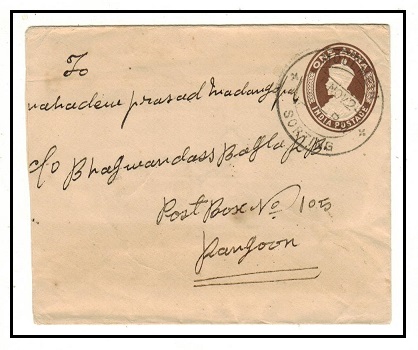 To
mahadew prasad madangopal
c/o Bhagwandass Bagla
Post Box No 105
Rangoon
ONE ANNA
INDIA POSTAGE